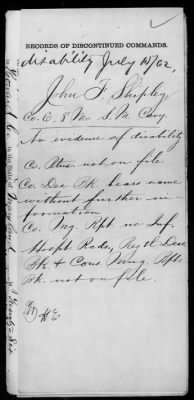 RECORDS OF DISCONTINUED COMMANDS.
disability July 15/62,
John F. Shipley
Co. E. 8 Mo. S. M. Cavy.
No evidence of disability
Co. not on file
Co. Des. Bk. bears name
without further in-
formation
Co. Mng. Rpt. no Inf.
Hospt. Rods, Regtl Des.
Bk. & Cons. Mng. Rpts
Bk. not on file.
in the State of Maryland
Twenty Six